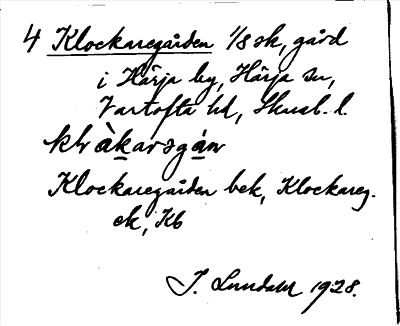 4 Klockaregården 1/8 sk, gård
i Härja by, Härja sn,
Vartofta hd, Skarab. l.
klràkarəgán
Klockaregården bek, Klockareg.
ek, Kb
J. Lundahl 1928.